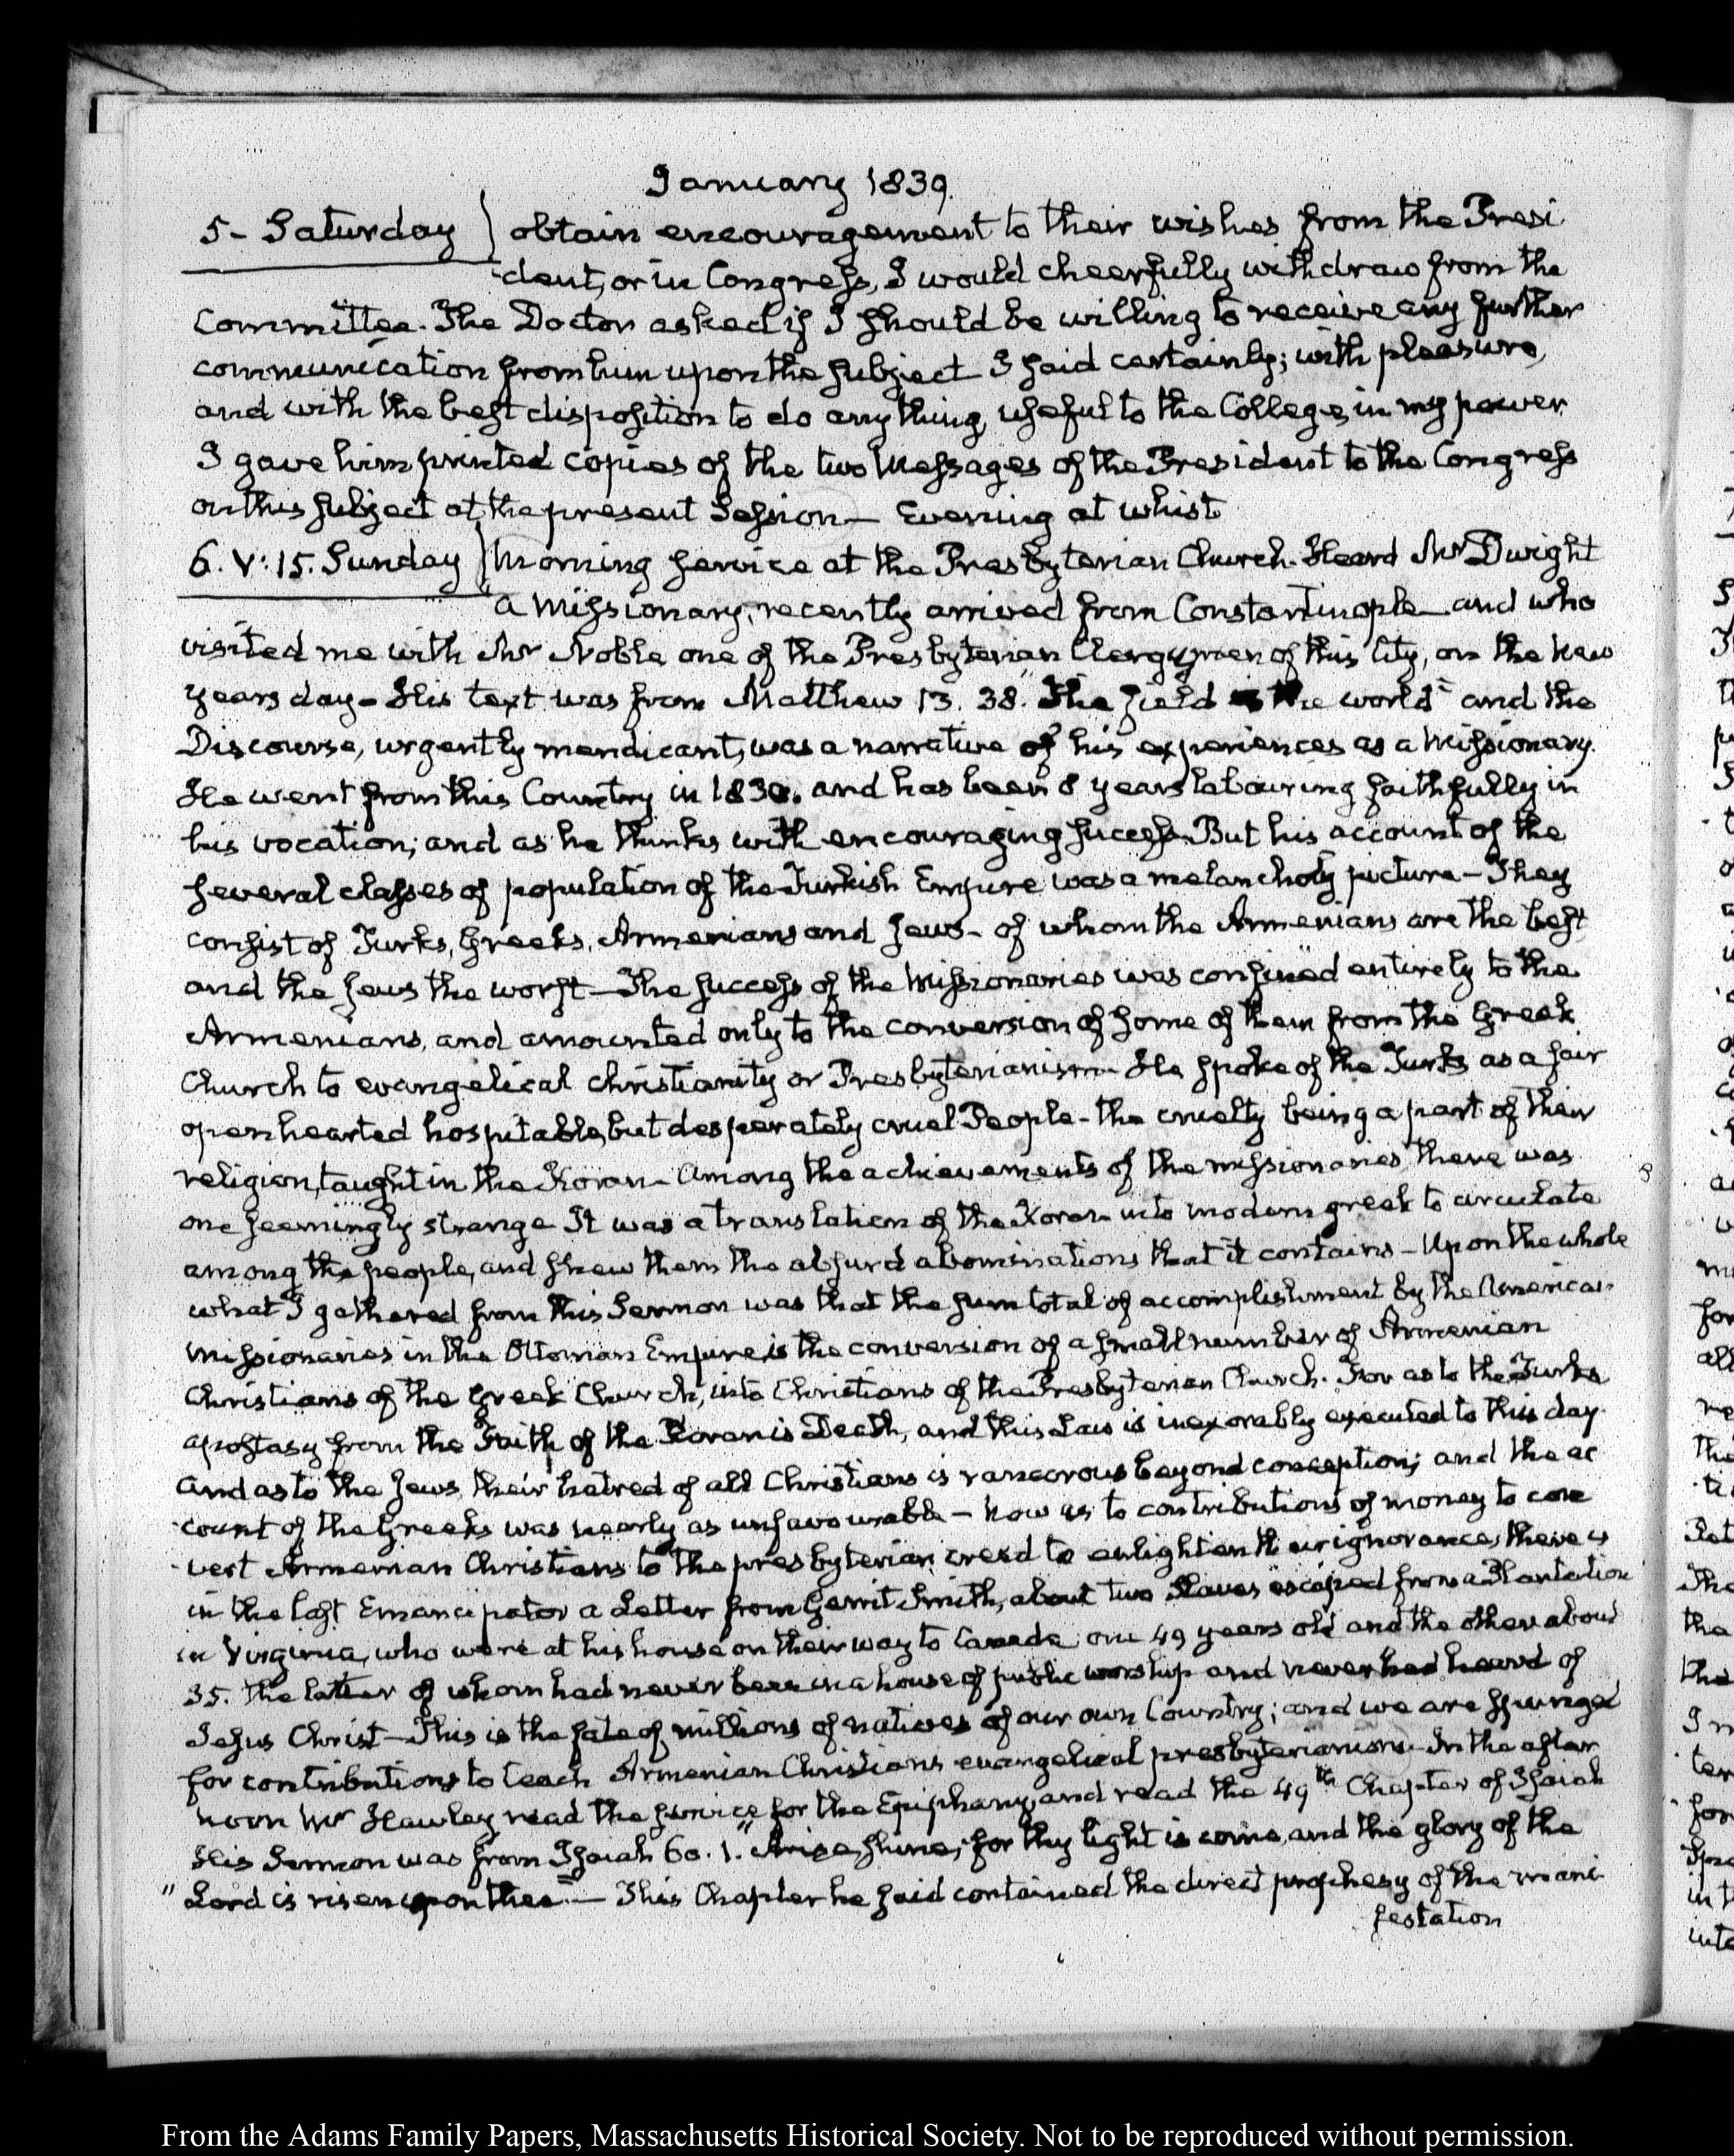 January 1839.
5 - Saturday } obtain encouragement to their wishes from the Presi
-dent, or in Congress, I would cheerfully withdraw from the
Committee. The Doctor asked if I should be willing to receive any further
communication from him upon the subject I said certainly; with pleasure,
and with the best disposition to do any thing useful to the College in my power
I gave him printed copies of the two Messages of the President to the Congress
on this subject at the present Session — Evening at whist
6. V: 15. Sunday } Morning service at the Presbyterian Church. Heard Mr Dwight
a Missionary, recently arrived from Constantinople — and who
visited me with Mr Noble one of the Presbyterian Clergymen of this City, on the New
years day — His text was from Matthew 13. 38. "The field is the world" and the
Discourse, urgently mendicant, was a narrative of his experiences as a Missionary.
He went from this Country in 1830. and has been 8 years labouring faithfully in
his vocation; and as he thinks with encouraging success. But his account of the
several classes of population of the Turkish Empire was a melancholy picture — They
consist of Turks, Greeks, Armenians and Jews — of whom the Armenians are the best
and the Jews the worst — The success of the Missionaries was confined entirely to the
Armenians, and amounted only to the conversion of some of them from the Greek
Church to evangelical christianity or Presbyterianism — He spoke of the Turks as a fair
open hearted hospitable, but desperately cruel People — the cruelty being a part of their
religion, taught in the Koran — Among the achievements of the missionaries there was
one seemingly strange It was a translation of the Koran into modern greek to circulate
among the people, and shew them the absurd abominations that it contains — Upon the whole
what I gathered from this Sermon was that the sum total of accomplishment by the American
missionaries in the Ottoman Empire, is the conversion of a small number of Armenian
Christians of the Greek Church, into Christians of the Presbyterian Church. For as to the Turks
apostasy from the Faith of the Koran is Death, and this Law is inexorably executed to this day.
and as to the Jews, their hatred of all Christians is rancorous beyond conception; and the ac
-count of the Greeks was nearly as unfavourable — Now as to contributions of money to con
-vert Armenian Christians to the presbyterian creed to enlighten their ignorance, there is
in the last Emancipator a Letter from Gerrit Smith, about two Slaves escaped from a Plantation
in Virginia, who were at his house on their way to Canada, one 49 years old and the other about
35. the latter of whom had never been in a house of public worship and never had heard of
Jesus Christ — This is the fate of millions of natives of our own Country; and we are spunged
for contributions to teach Armenian Christians evangelical presbyterianism — In the after
noon Mr Hawley read the service for the Epiphany, and read the 49th Chapter of Isaiah
His Sermon was from Isaiah 60. 1. "Arise, shine, for thy light is come, and the glory of the
" Lord is risen upon thee" — This Chapter he said contained the direct prophesy of the mani
festation
From the Adams Family Papers, Massachusetts Historical Society. Not to be reproduced without permission.